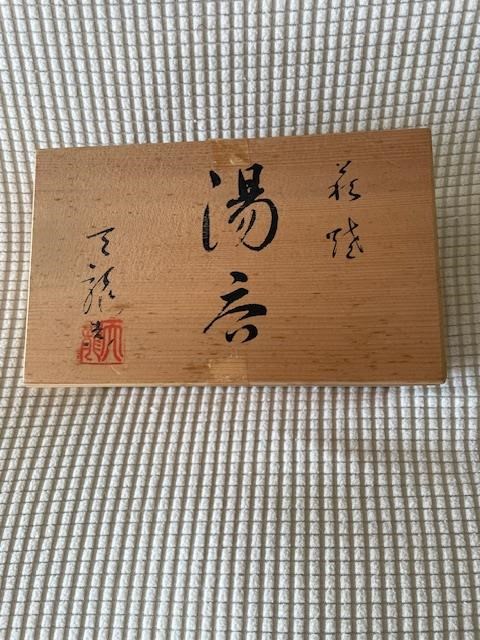 萩焼
湯呑
天龍造